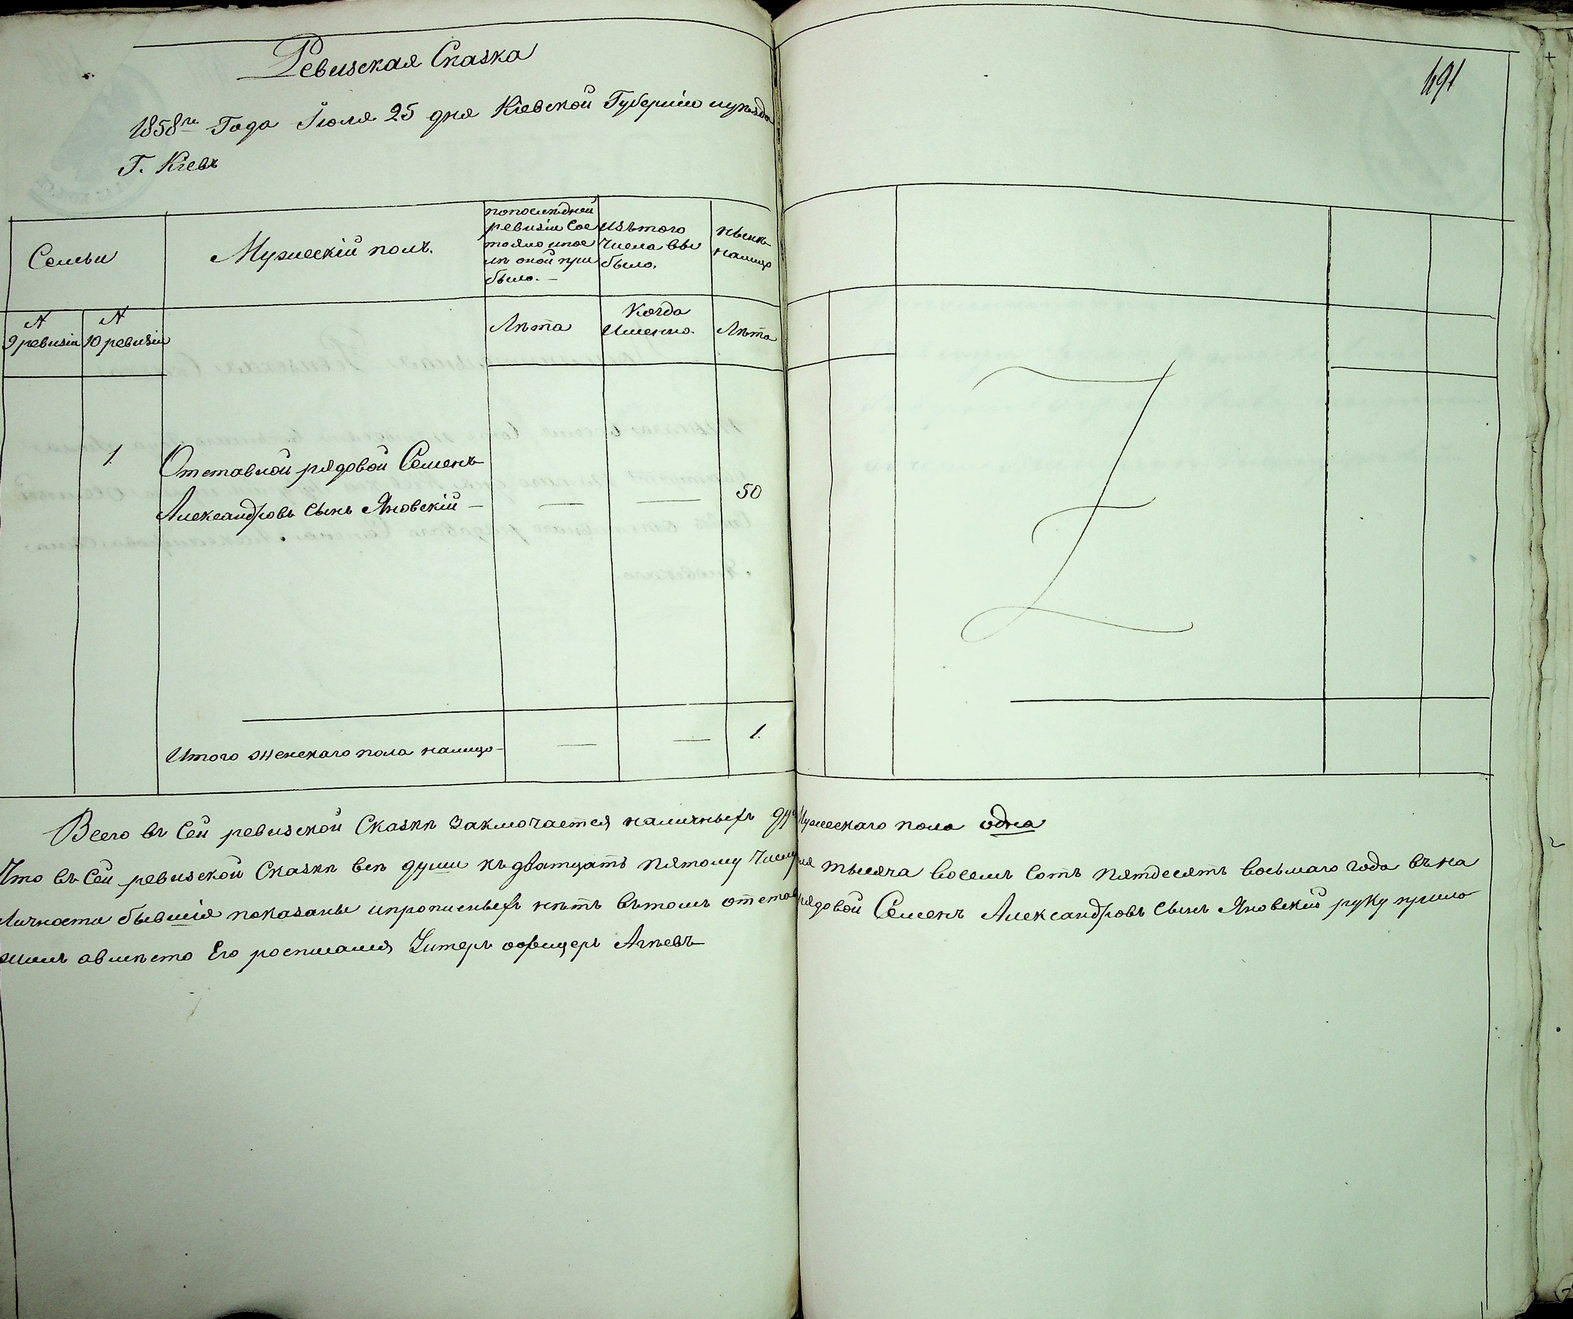 Ревизская Сказка
491
1858го Года Іюля 25 дня Кіевской Губерніи иуѣзда
Г. Кіевъ
Семьи
Мужескій полъ.
попоследней
ревизіи Сос
тояло ипос
лѣ оной при
было.
Изътого
Числа вы
было.
нынѣ
налицо
№
9 ревизіи
№
10 ревизіи
Лѣта
Когда
Именно.
Лѣта
1.
Отставной рядовой Семенъ
Александровъ Сынъ Яновскій — — — 50
Итого женскаго пола налицо — — — 1.
Всего въ Сей ревизской Сказкѣ Заключается наличныхъ душъ Мужескаго пола одна
Что въ Сей ревизской Сказкѣ всѣ души къ дватцать пятому Числу тысяча восемь сотъ пятдесятъ восьмаго года въ на
личности бывшія показаны ипрописныхъ нѣтъ вътомъ отставной рядовой Семенъ Александровъ Сынъ Яновскій руку прило
жилъ авмѣсто Его росписался Унтеръ офицеръ Агѣевъ